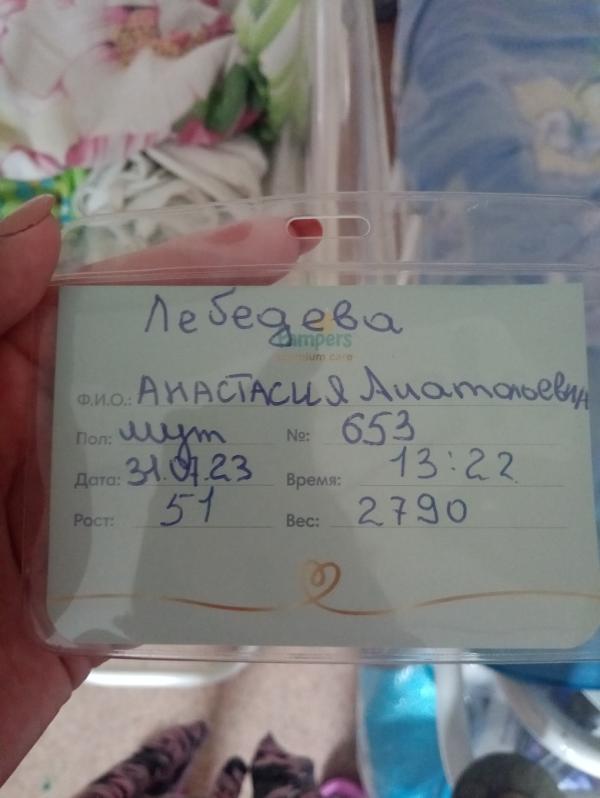 Лебедева
Pampers
premium care
Ф.И.О.: АНАСТАСИЯ Анатольевна
Пол: муж №: 653
Дата: 31.07.23 Время: 13:22
Рост: 51 Вес: 2790